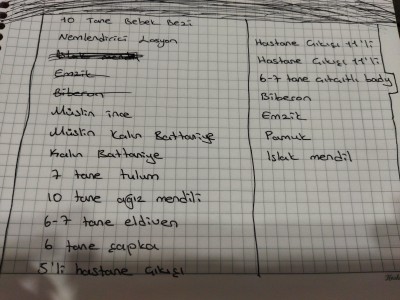 10 Tane Bebek Bezi
Nemlendirici Losyon
Emzik
Biberon
Müslin ince
Müslin Kalın Battaniye
Kalın Battaniye
7 tane tulum
10 tane ağız mendili
6-7 tane eldiven
6 tane şapka
5'li hastane çıkışı
Hastane Çıkışı 11'li
Hastane Çıkışı 11'li
6-7 tane çıtçıtlı body
Biberon
Emzik
Pamuk
Islak mendil